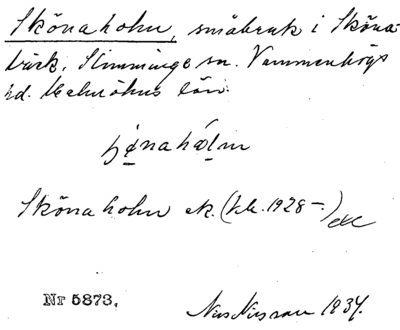 Skönaholm, småbruk i Sköna-
bäck, Slimminge sn. Vemmenhögs
hd. Malmöhus län.
Skönaholm ek. (kb. 1928 –.)
Nr 5873.
1934.